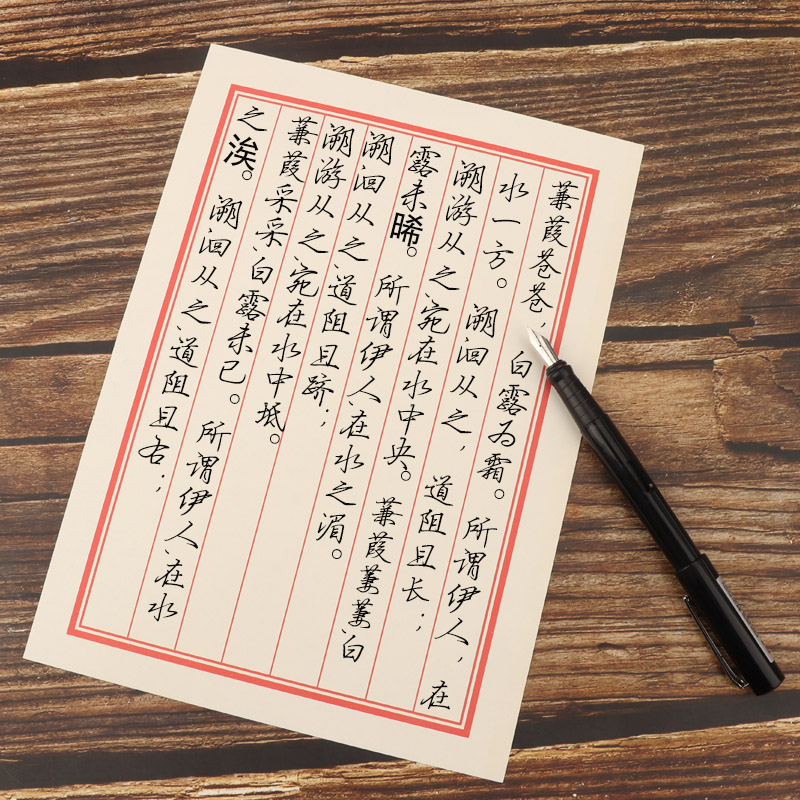 蒹葭苍苍，白露为霜。所谓伊人，在
水一方。溯洄从之，道阻且长；
溯游从之、宛在水中央。蒹葭萋萋、白
露未晞。所谓伊人、在水之湄。
溯洄从之、道阻且跻；
溯游从之、宛在水中坻。
蒹葭采采、白露未已。所谓伊人、在水
之涘。溯洄从之、道阻且右；